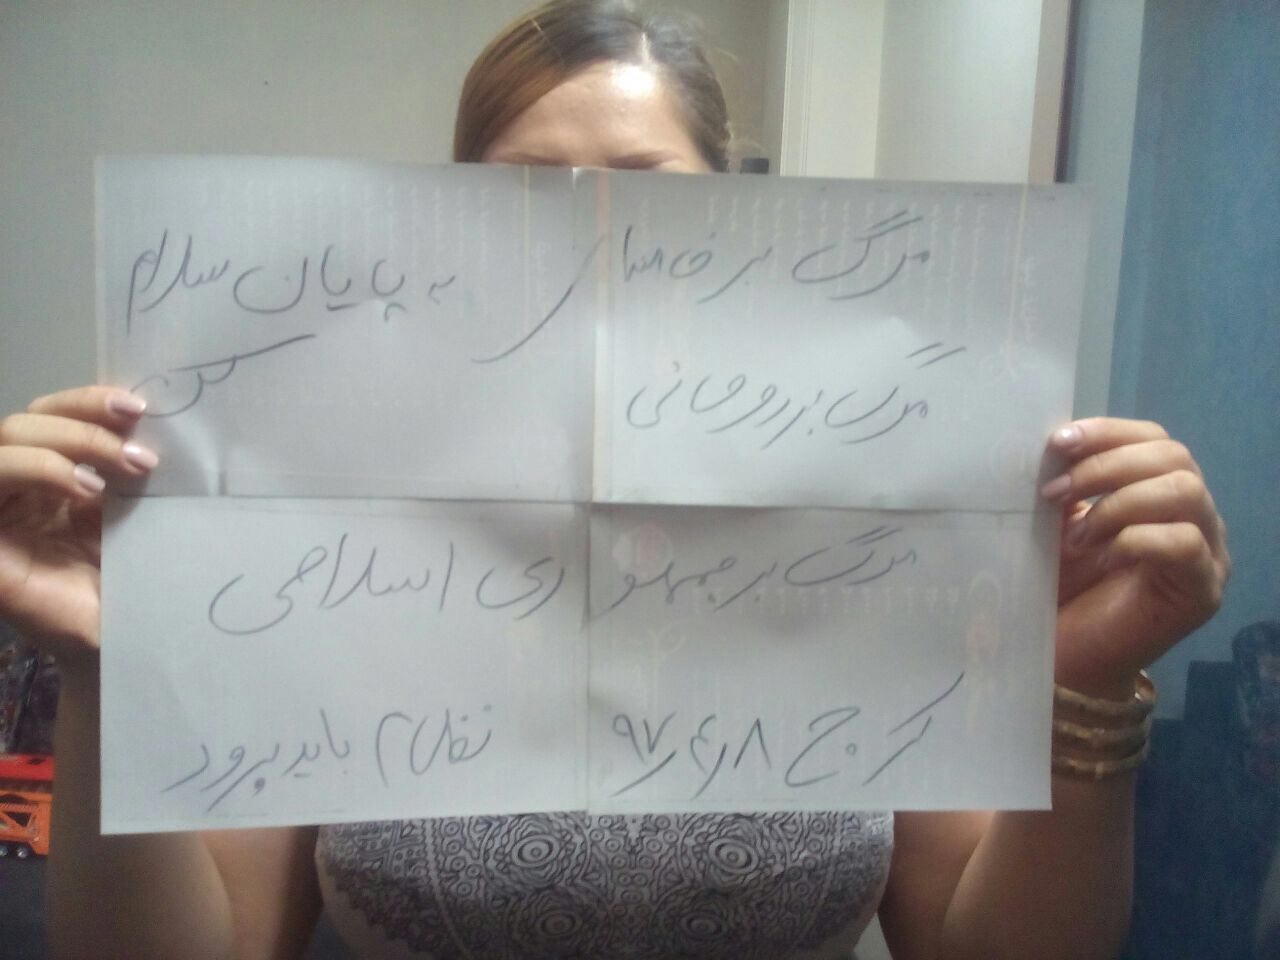 مرگ بر به پایان سلام
مرگ بر روحانی کن
مرگ بر جمهوری اسلامی
کرج ۹۷٫۴٫۸ نظام باید برود